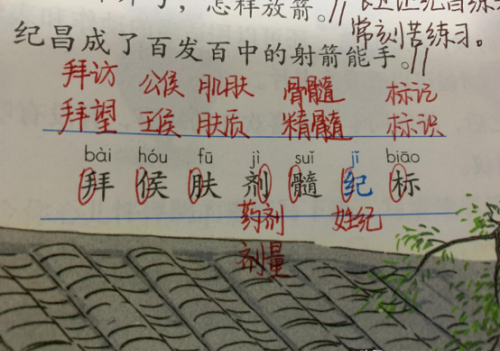 怎样放箭。//
常刻苦练习。
纪昌成了百发百中的射箭能手。//
拜访 公侯 肌肤 骨髓 标记
拜望 王侯 肤质 精髓 标识
bài hóu fū jì suǐ jǐ biāo
拜 侯 肤 剂 髓 纪 标
药剂 姓纪
剂量